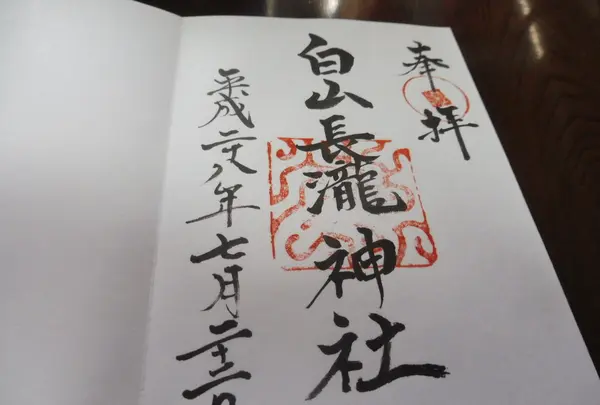 奉拝
白山長瀧神社
平成二十八年七月二十一日